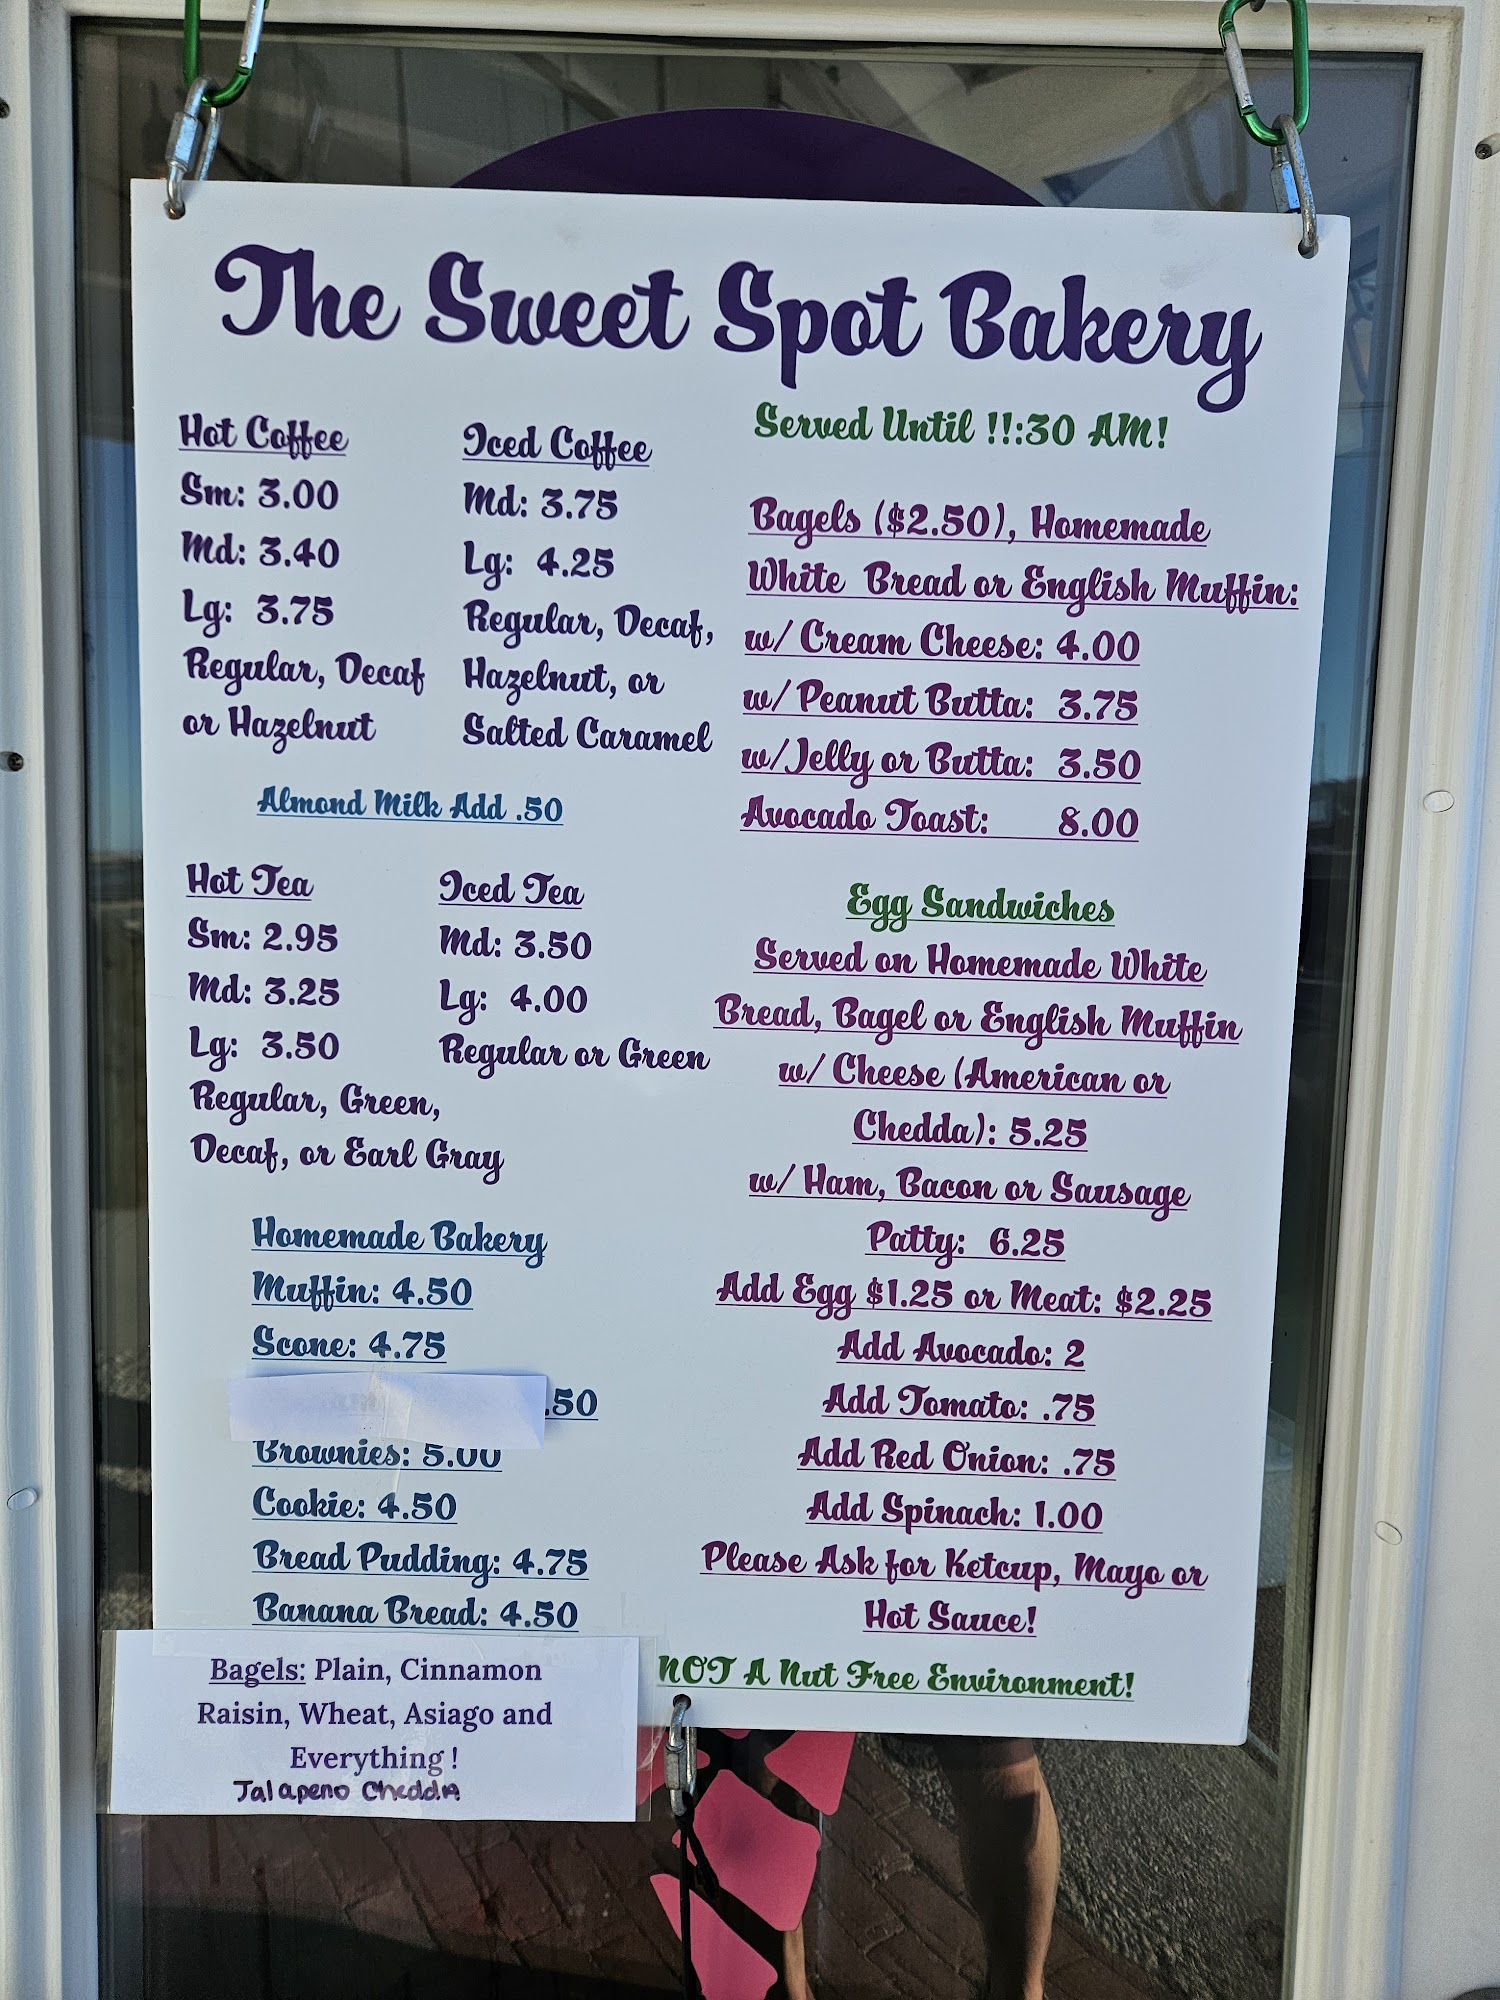 The Sweet Spot Bakery
Hot Coffee
Sm: 3.00
Md: 3.40
Lg: 3.75
Regular, Decaf
or Hazelnut
Iced Coffee
Md: 3.75
Lg: 4.25
Regular, Decaf,
Hazelnut, or
Salted Caramel
Almond Milk Add .50
Hot Tea
Sm: 2.95
Md: 3.25
Lg: 3.50
Regular, Green,
Decaf, or Earl Gray
Iced Tea
Md: 3.50
Lg: 4.00
Regular or Green
Homemade Bakery
Muffin: 4.50
Scone: 4.75
.50
Brownies: 5.00
Cookie: 4.50
Bread Pudding: 4.75
Banana Bread: 4.50
Bagels: Plain, Cinnamon
Raisin, Wheat, Asiago and
Everything !
Jalapeno Chedda
Served Until !!:30 AM!
Bagels ($2.50), Homemade
White Bread or English Muffin:
w/ Cream Cheese: 4.00
w/ Peanut Butta: 3.75
w/Jelly or Butta: 3.50
Avocado Toast: 8.00
Egg Sandwiches
Served on Homemade White
Bread, Bagel or English Muffin
w/ Cheese (American or
Chedda): 5.25
w/ Ham, Bacon or Sausage
Patty: 6.25
Add Egg $1.25 or Meat: $2.25
Add Avocado: 2
Add Tomato: .75
Add Red Onion: .75
Add Spinach: 1.00
Please Ask for Ketcup, Mayo or
Hot Sauce!
NOT A Nut Free Environment!